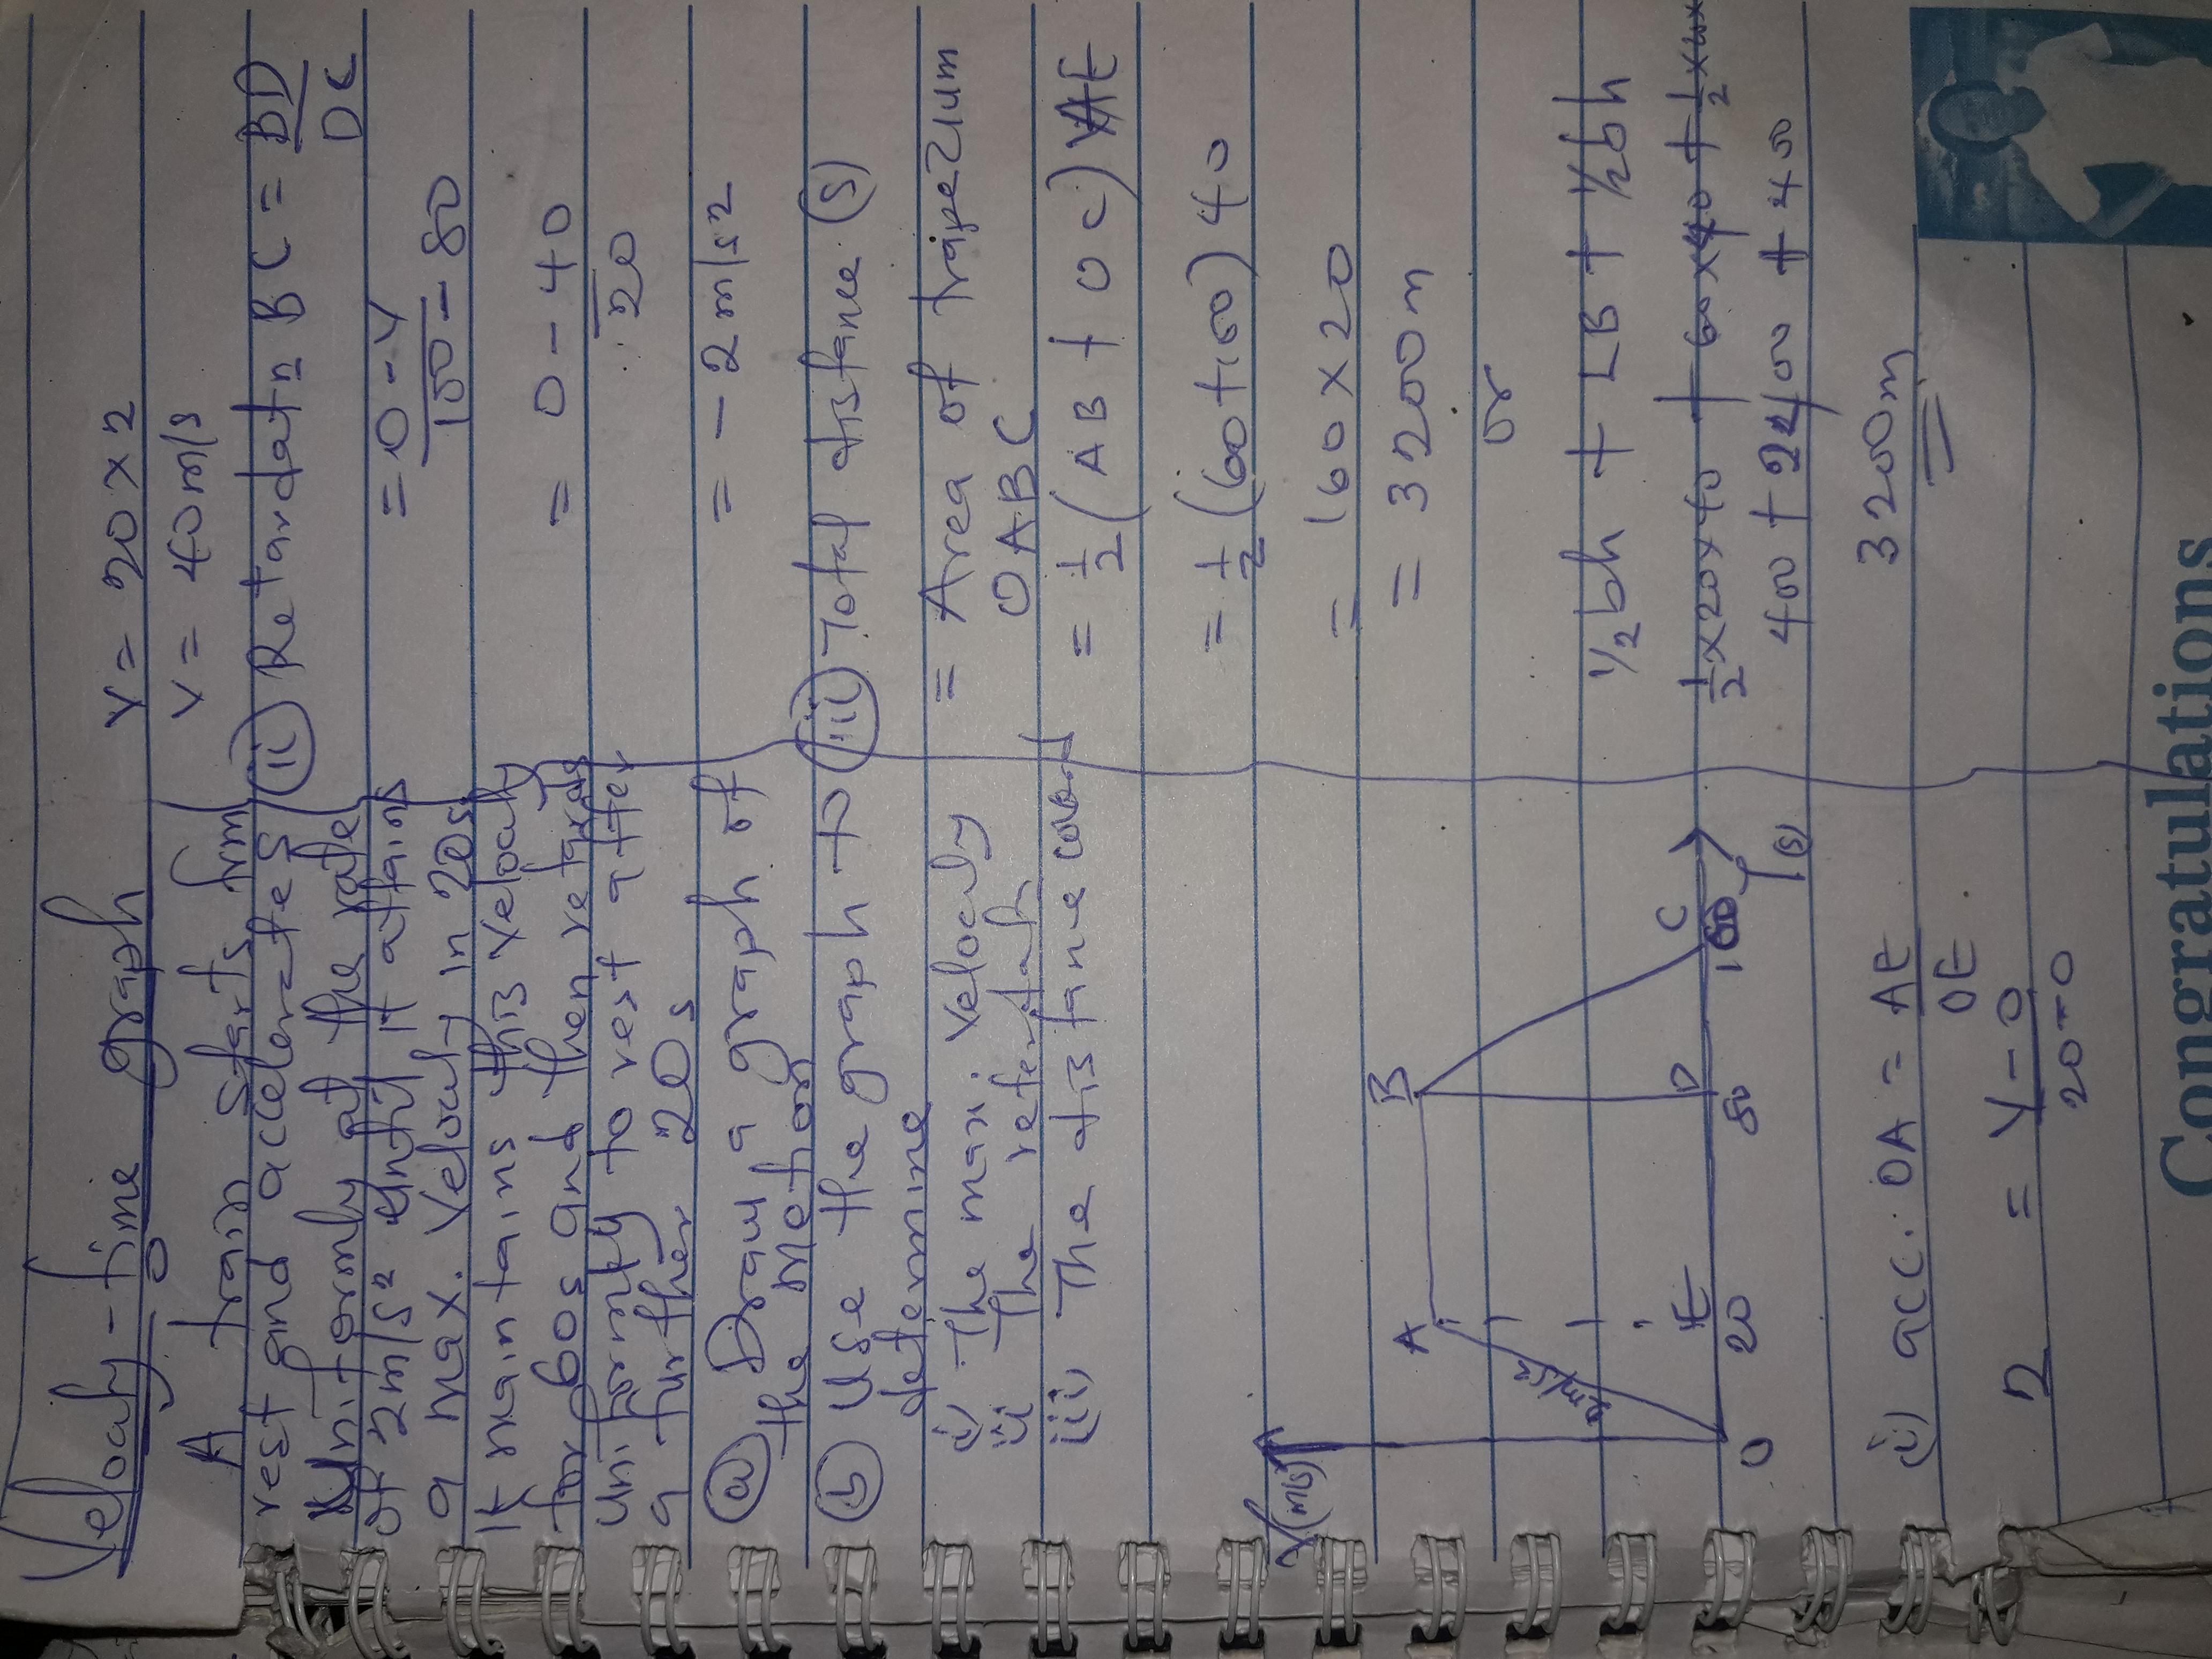 Velocity-time graph
A train starts frm
rest and accelerates
Uniformly at the rate
of 2m/s² until it attains
a max. Velocity in 20s
It maintains this velocity
for 60s and then retards
uniformly to rest after
a further 20s
(a) Draw a graph of
the Motion
(b) Use the graph to
determine
i) The maxi velocity
ii The retardatn
iii) The distance covered
V(m/s)
A B
2m/s²
E D C
0 20 80 100 T(s)
(i) acc. OA = AE
OE
2 = V-0
20-0
V = 20 x 2
V = 40m/s
(ii) Retardatn BC = BD
DC
= 0-V
100-80
= 0-40
20
= -2m/s²
(iii) Total distance (s)
= Area of trapezium
OABC
= ½(AB + OC) AE
= ½(60+100) 40
= 160 x 20
= 3200m
or
½bh + LB + ½bh
½x20x40 + 60x40 + ½x40x
400 + 2400 + 400
3200m
Congratulations